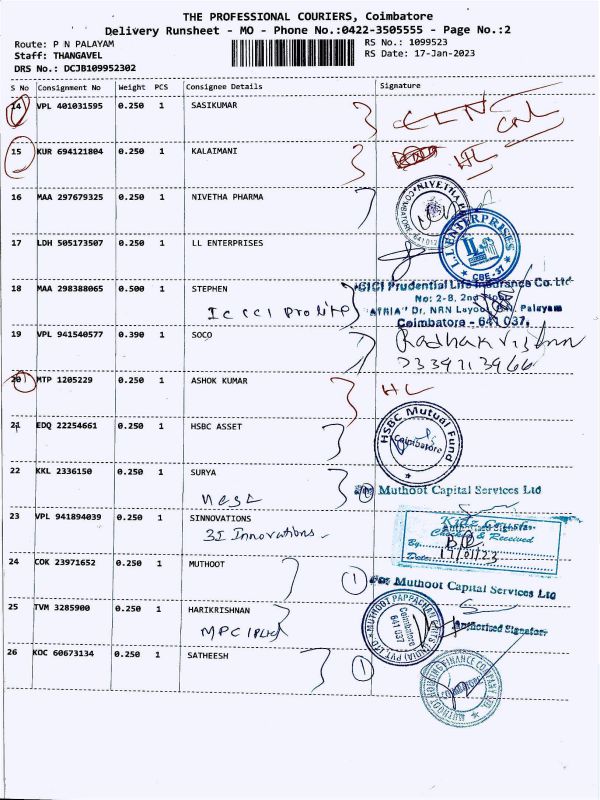 THE PROFESSIONAL COURIERS, Coimbatore
Delivery Runsheet - MO - Phone No.:0422-3505555 - Page No.:2
Route: P N PALAYAM
RS No.: 1099523
Staff: THANGAVEL
RS Date: 17-Jan-2023
DRS No.: DCJB109952302
S No Consignment No Weight PCS Consignee Details Signature
14 VPL 401031595 0.250 1 SASIKUMAR
15 KUR 694121804 0.250 1 KALAIMANI
16 MAA 297679325 0.250 1 NIVETHA PHARMA
17 LDH 505173507 0.250 1 LL ENTERPRISES
L.L ENTERPRISES
CBE-37
18 MAA 298388065 0.500 1 STEPHEN
ICICI Prudential Life Insurance Co.Ltd
No: 2-8, 2nd Floor
Coimbatore - 641 037.
19 VPL 941540577 0.390 1 SOCO
Radhakrishnan
20 MTP 1205229 0.250 1 ASHOK KUMAR HL
21 EDQ 22254661 0.250 1 HSBC ASSET
HSBC Mutual Fund
Coimbatore
22 KKL 2336150 0.250 1 SURYA
Muthoot Capital Services Ltd
23 VPL 941894039 0.250 1 SINNOVATIONS
3I Innovations
Checked & Received
By
Date: 17/01/23
24 COK 23971652 0.250 1 MUTHOOT
1 For Muthoot Capital Services Ltd
25 TVM 3285900 0.250 1 HARIKRISHNAN
Authorized Signatory
Coimbatore
641 037
26 KOC 60673134 0.250 1 SATHEESH
1